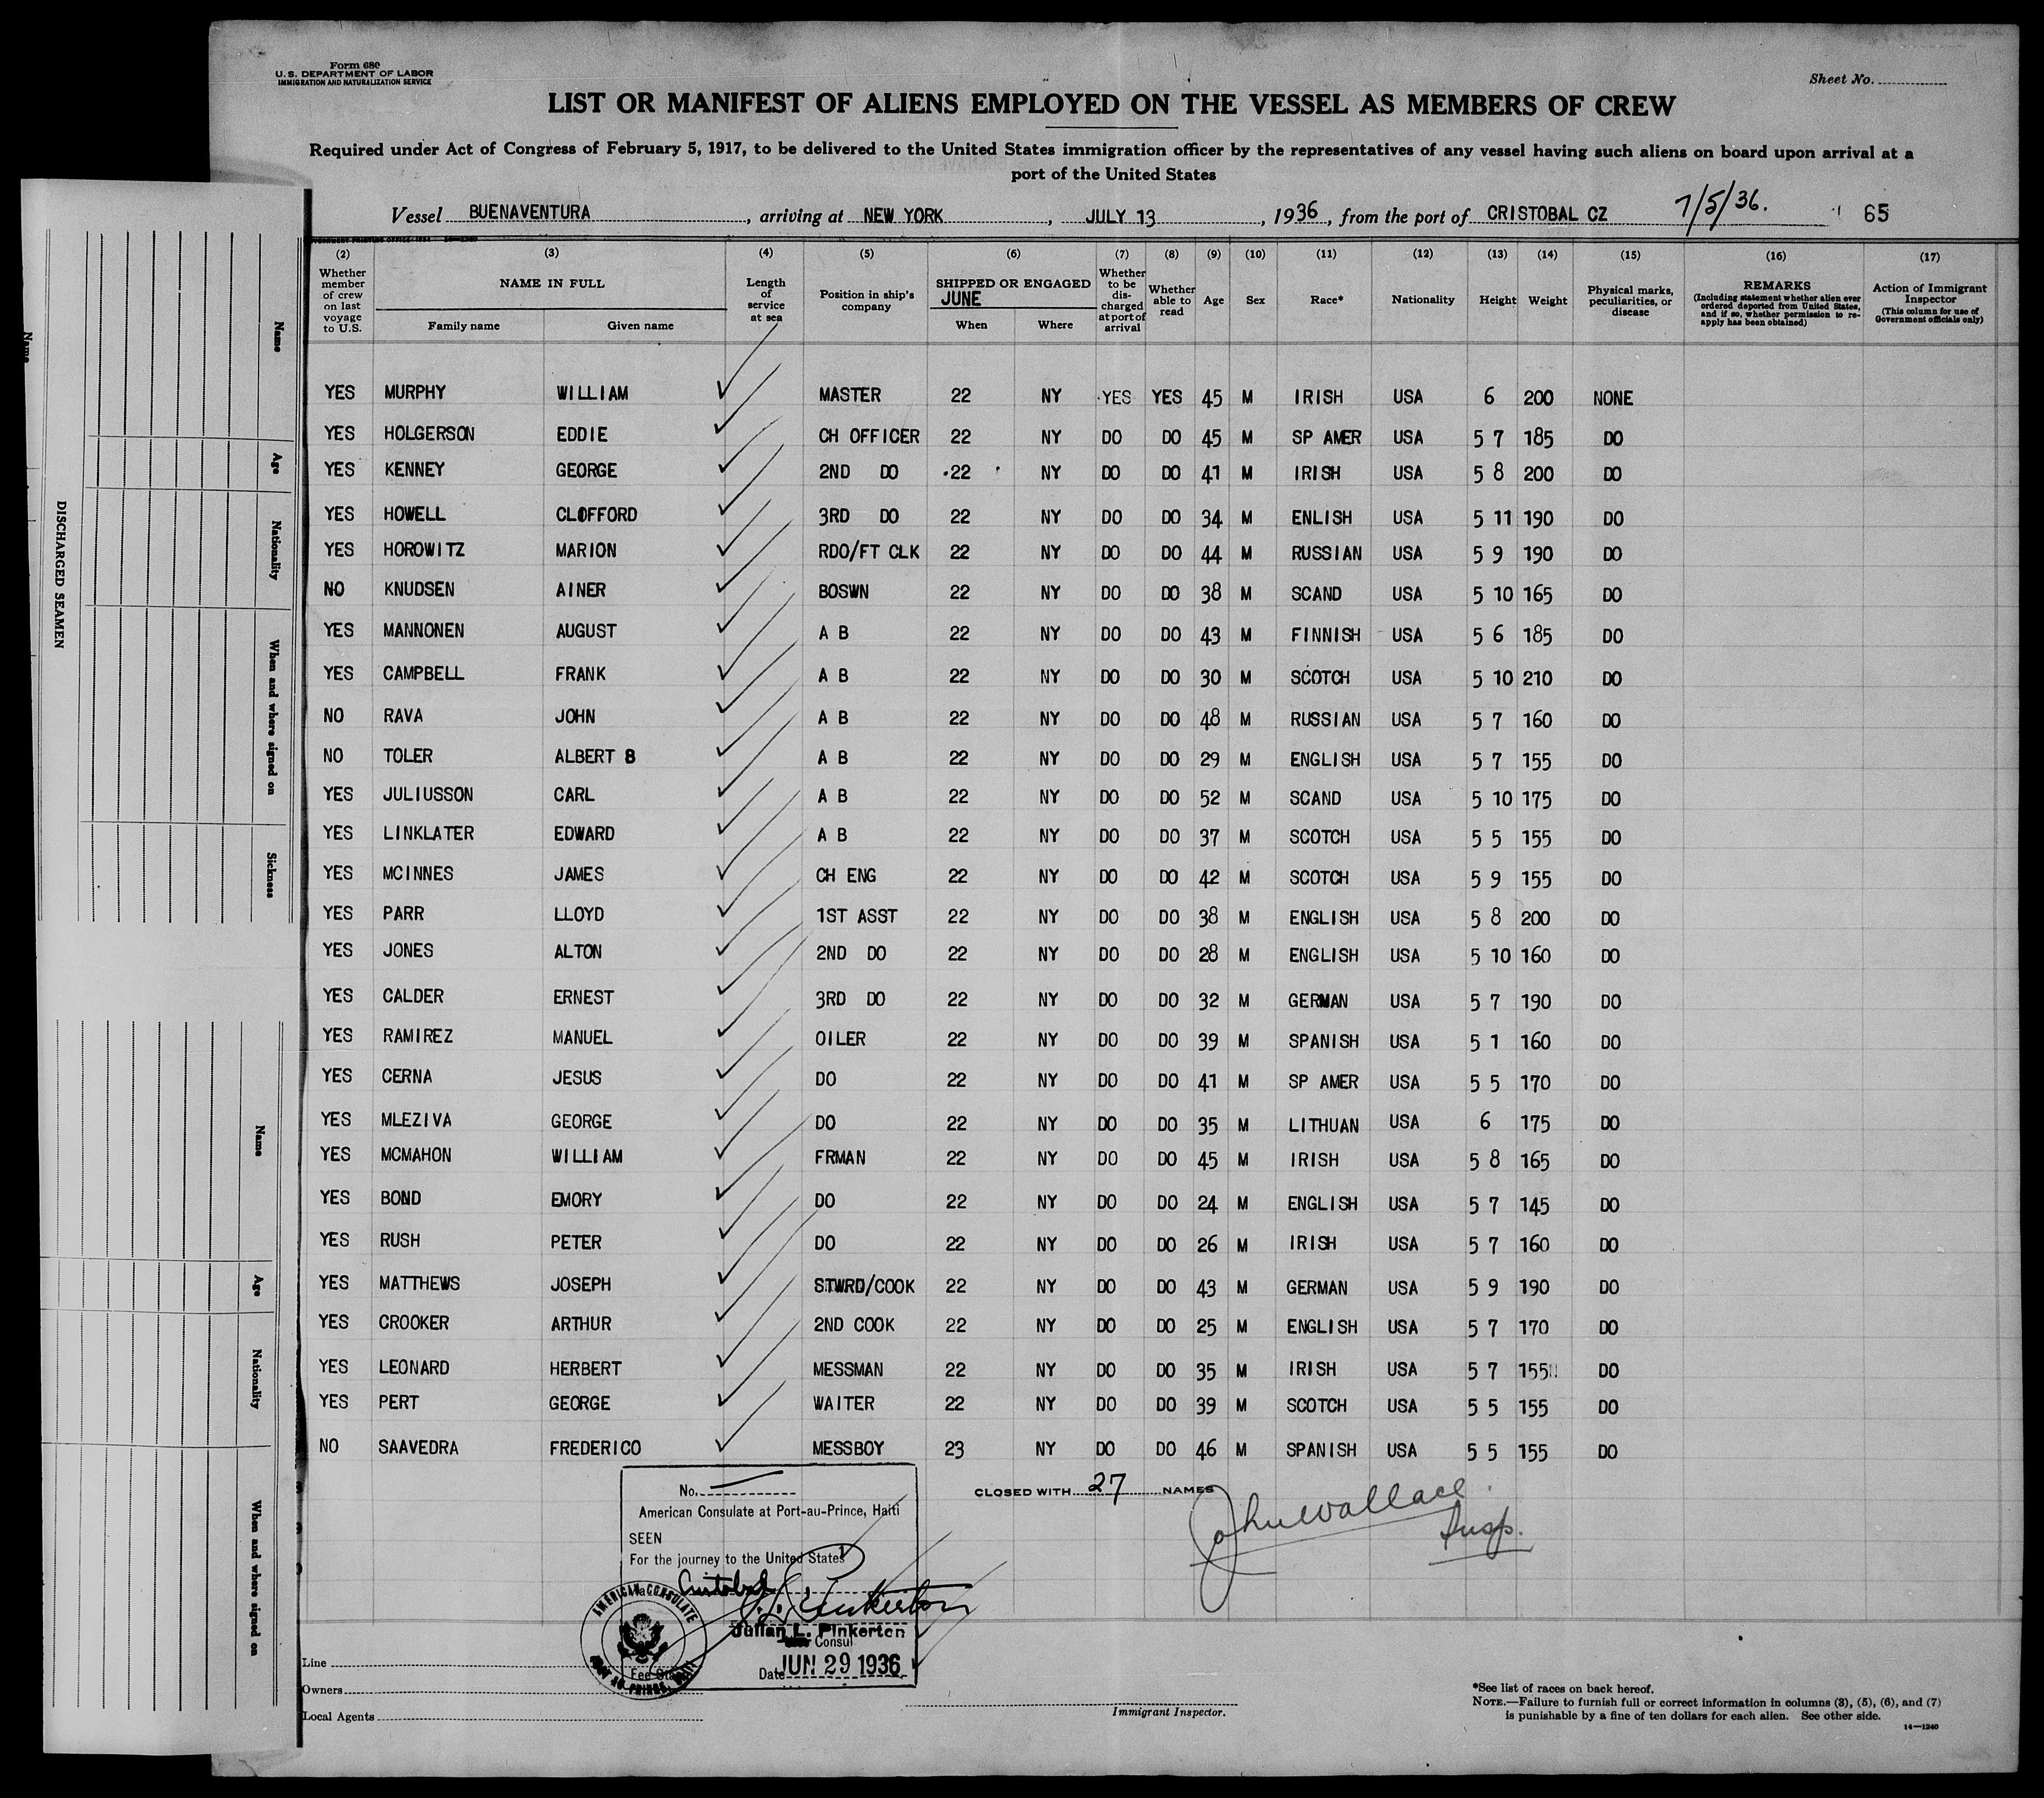 Form 680
U. S. DEPARTMENT OF LABOR
IMMIGRATION AND NATURALIZATION SERVICE
Sheet No.
LIST OR MANIFEST OF ALIENS EMPLOYED ON THE VESSEL AS MEMBERS OF CREW
Required under Act of Congress of February 5, 1917, to be delivered to the United States immigration officer by the representatives of any vessel having such aliens on board upon arrival at a
port of the United States
Vessel BUENAVENTURA, arriving at NEW YORK, JULY 13, 1936, from the port of CRISTOBAL CZ 7/5/36. 65
(2) (3) (4) (5) (6) (7) (8) (9) (10) (11) (12) (13) (14) (15) (16) (17)
Whether member of crew on last voyage to U.S. NAME IN FULL Family name Given name Length of service at sea Position in ship's company SHIPPED OR ENGAGED JUNE When Where Whether to be discharged at port of arrival Whether able to read Age Sex Race* Nationality Height Weight Physical marks, peculiarities, or disease REMARKS (Including statement whether alien ever ordered deported from United States, and if so, whether permission to reapply has been obtained) Action of Immigrant Inspector (This column for use of Government officials only)
YES MURPHY WILLIAM MASTER 22 NY YES YES 45 M IRISH USA 6 200 NONE
YES HOLGERSON EDDIE CH OFFICER 22 NY DO DO 45 M SP AMER USA 5 7 185 DO
YES KENNEY GEORGE 2ND DO 22 NY DO DO 41 M IRISH USA 5 8 200 DO
YES HOWELL CLOFFORD 3RD DO 22 NY DO DO 34 M ENLISH USA 5 11 190 DO
YES HOROWITZ MARION RDO/FT CLK 22 NY DO DO 44 M RUSSIAN USA 5 9 190 DO
NO KNUDSEN AINER BOSWN 22 NY DO DO 38 M SCAND USA 5 10 165 DO
YES MANNONEN AUGUST A B 22 NY DO DO 43 M FINNISH USA 5 6 185 DO
YES CAMPBELL FRANK A B 22 NY DO DO 30 M SCOTCH USA 5 10 210 DO
NO RAVA JOHN A B 22 NY DO DO 48 M RUSSIAN USA 5 7 160 DO
NO TOLER ALBERT B A B 22 NY DO DO 29 M ENGLISH USA 5 7 155 DO
YES JULIUSSON CARL A B 22 NY DO DO 52 M SCAND USA 5 10 175 DO
YES LINKLATER EDWARD A B 22 NY DO DO 37 M SCOTCH USA 5 5 155 DO
YES MCINNES JAMES CH ENG 22 NY DO DO 42 M SCOTCH USA 5 9 155 DO
YES PARR LLOYD 1ST ASST 22 NY DO DO 38 M ENGLISH USA 5 8 200 DO
YES JONES ALTON 2ND DO 22 NY DO DO 28 M ENGLISH USA 5 10 160 DO
YES CALDER ERNEST 3RD DO 22 NY DO DO 32 M GERMAN USA 5 7 190 DO
YES RAMIREZ MANUEL OILER 22 NY DO DO 39 M SPANISH USA 5 1 160 DO
YES CERNA JESUS DO 22 NY DO DO 41 M SP AMER USA 5 5 170 DO
YES MLEZIVA GEORGE DO 22 NY DO DO 35 M LITHUAN USA 6 175 DO
YES MCMAHON WILLIAM FRMAN 22 NY DO DO 45 M IRISH USA 5 8 165 DO
YES BOND EMORY DO 22 NY DO DO 24 M ENGLISH USA 5 7 145 DO
YES RUSH PETER DO 22 NY DO DO 26 M IRISH USA 5 7 160 DO
YES MATTHEWS JOSEPH STWRD/COOK 22 NY DO DO 43 M GERMAN USA 5 9 190 DO
YES CROOKER ARTHUR 2ND COOK 22 NY DO DO 25 M ENGLISH USA 5 7 170 DO
YES LEONARD HERBERT MESSMAN 22 NY DO DO 35 M IRISH USA 5 7 155 DO
YES PERT GEORGE WAITER 22 NY DO DO 39 M SCOTCH USA 5 5 155 DO
NO SAAVEDRA FREDERICO MESSBOY 23 NY DO DO 46 M SPANISH USA 5 5 155 DO
CLOSED WITH 27 NAMES
John Wallace
Insp.
No.
American Consulate at Port-au-Prince, Haiti
SEEN
For the journey to the United States
Cristobal
J. L. Pinkerton
Julian L. Pinkerton
Consul
Date JUN 29 1936
AMERICAN CONSULATE
PORT AU PRINCE, HAITI
Line
Owners
Local Agents
Immigrant Inspector.
*See list of races on back hereof.
NOTE.—Failure to furnish full or correct information in columns (3), (5), (6), and (7)
is punishable by a fine of ten dollars for each alien. See other side.
14—1240
DISCHARGED SEAMEN
Name
Age
Nationality
When and where signed on
Sickness
Name
Name
Age
Nationality
When and where signed on